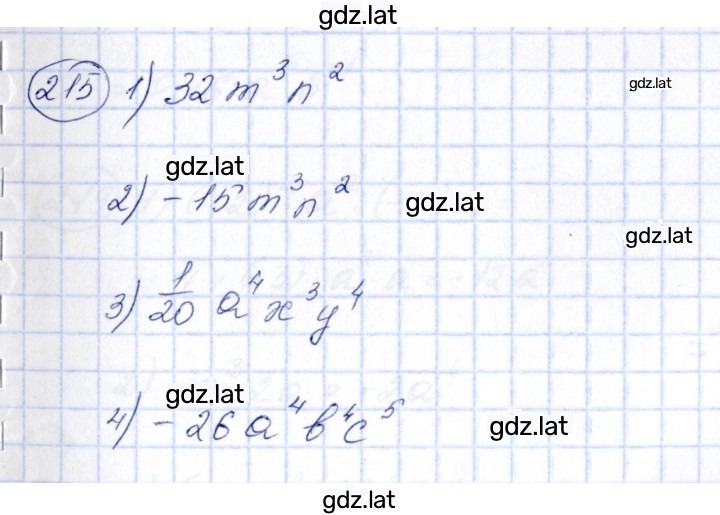 gdz.lat
215 1) 32 m³n² gdz.lat
gdz.lat
2) - 15 m³n² gdz.lat
gdz.lat
3) 1/20 a⁴x³y⁴
gdz.lat
4) - 26 a⁴b⁴c⁵ gdz.lat
gdz.lat